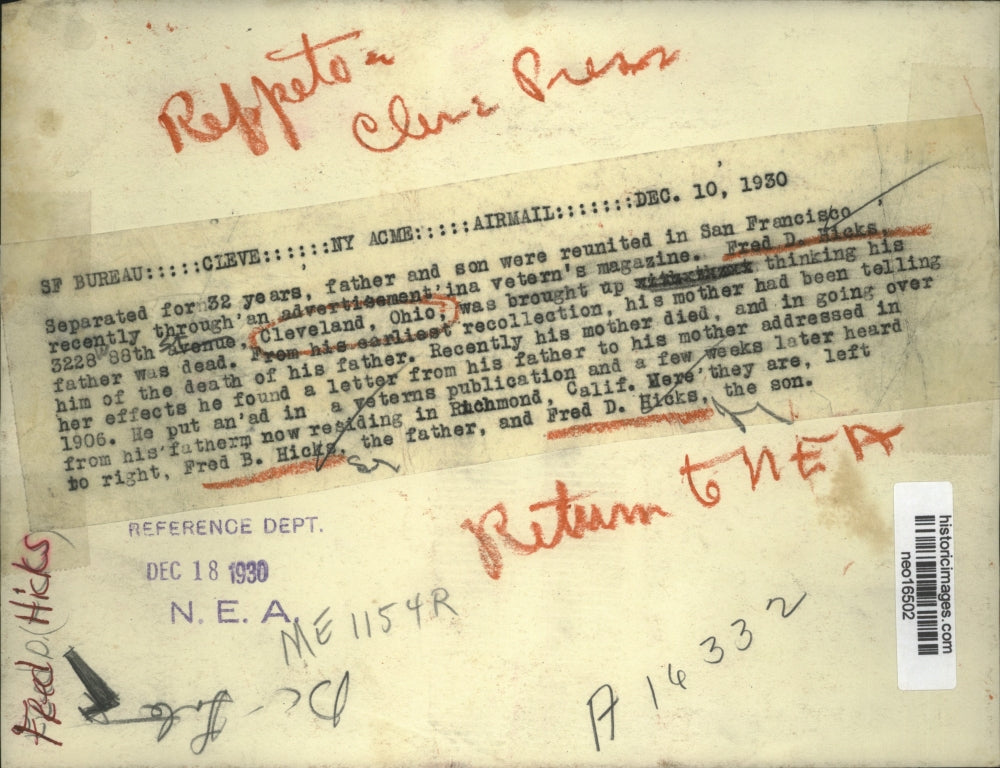 Reppeto -
Cleve Press
SF BUREAU:::::CLEVE::::::NY ACME:::::AIRMAIL:::::::DEC. 10, 1930
Separated for 32 years, father and son were reunited in San Francisco
recently through an advertisement ina vetern's magazine. Fred D. Hicks,
3228 88th avenue, Cleveland, Ohio, was brought up thinking his
father was dead. From his earliest recollection, his mother had been telling
him of the death of his father. Recently his mother died, and in going over
her effects he found a letter from his father to his mother addressed in
1906. He put an ad in a veterns publication and a few weeks later heard
from his fatherm now residing in Richmond, Calif. Here they are, left
to right, Fred B. Hicks, the father, and Fred D. Hicks, the son.
Return to NEA
REFERENCE DEPT.
DEC 18 1930
N. E. A.
ME 1154R
A 16332
Fred D. Hicks
historicimages.com
neo16502